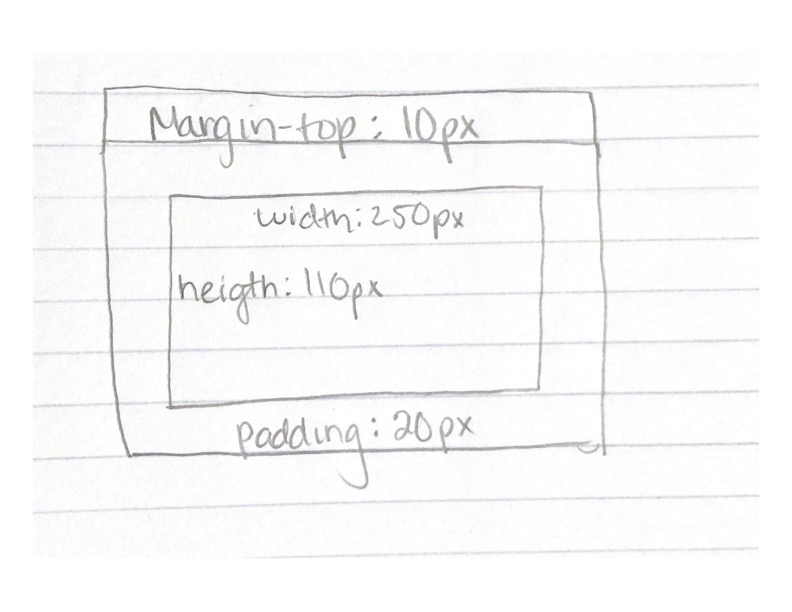 Margin-top: 10px
width: 250px
heigth: 110px
padding: 20px